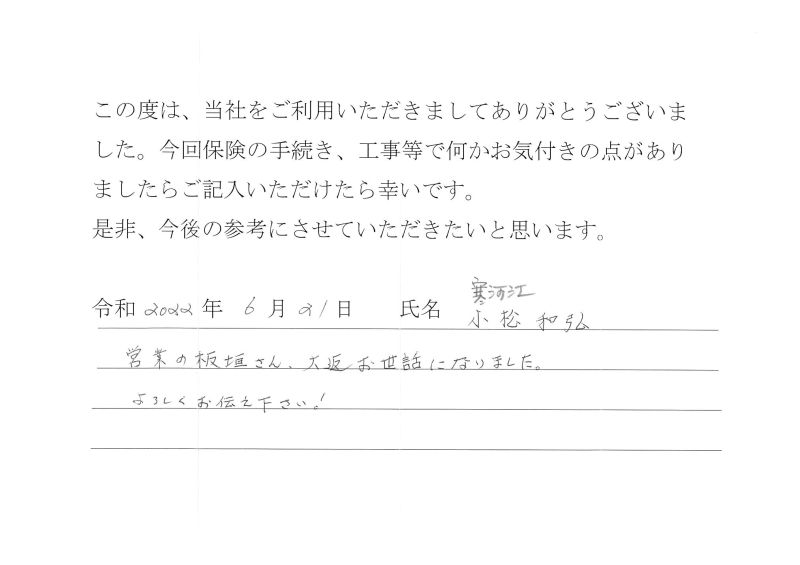 この度は、当社をご利用いただきましてありがとうございま
した。今回保険の手続き、工事等で何かお気付きの点があり
ましたらご記入いただけたら幸いです。
是非、今後の参考にさせていただきたいと思います。
寒河江
令和 2022 年 6 月 21 日 氏名 小松 和弘
営業の板垣さん、大返お世話になりました。
よろしくお伝え下さい!